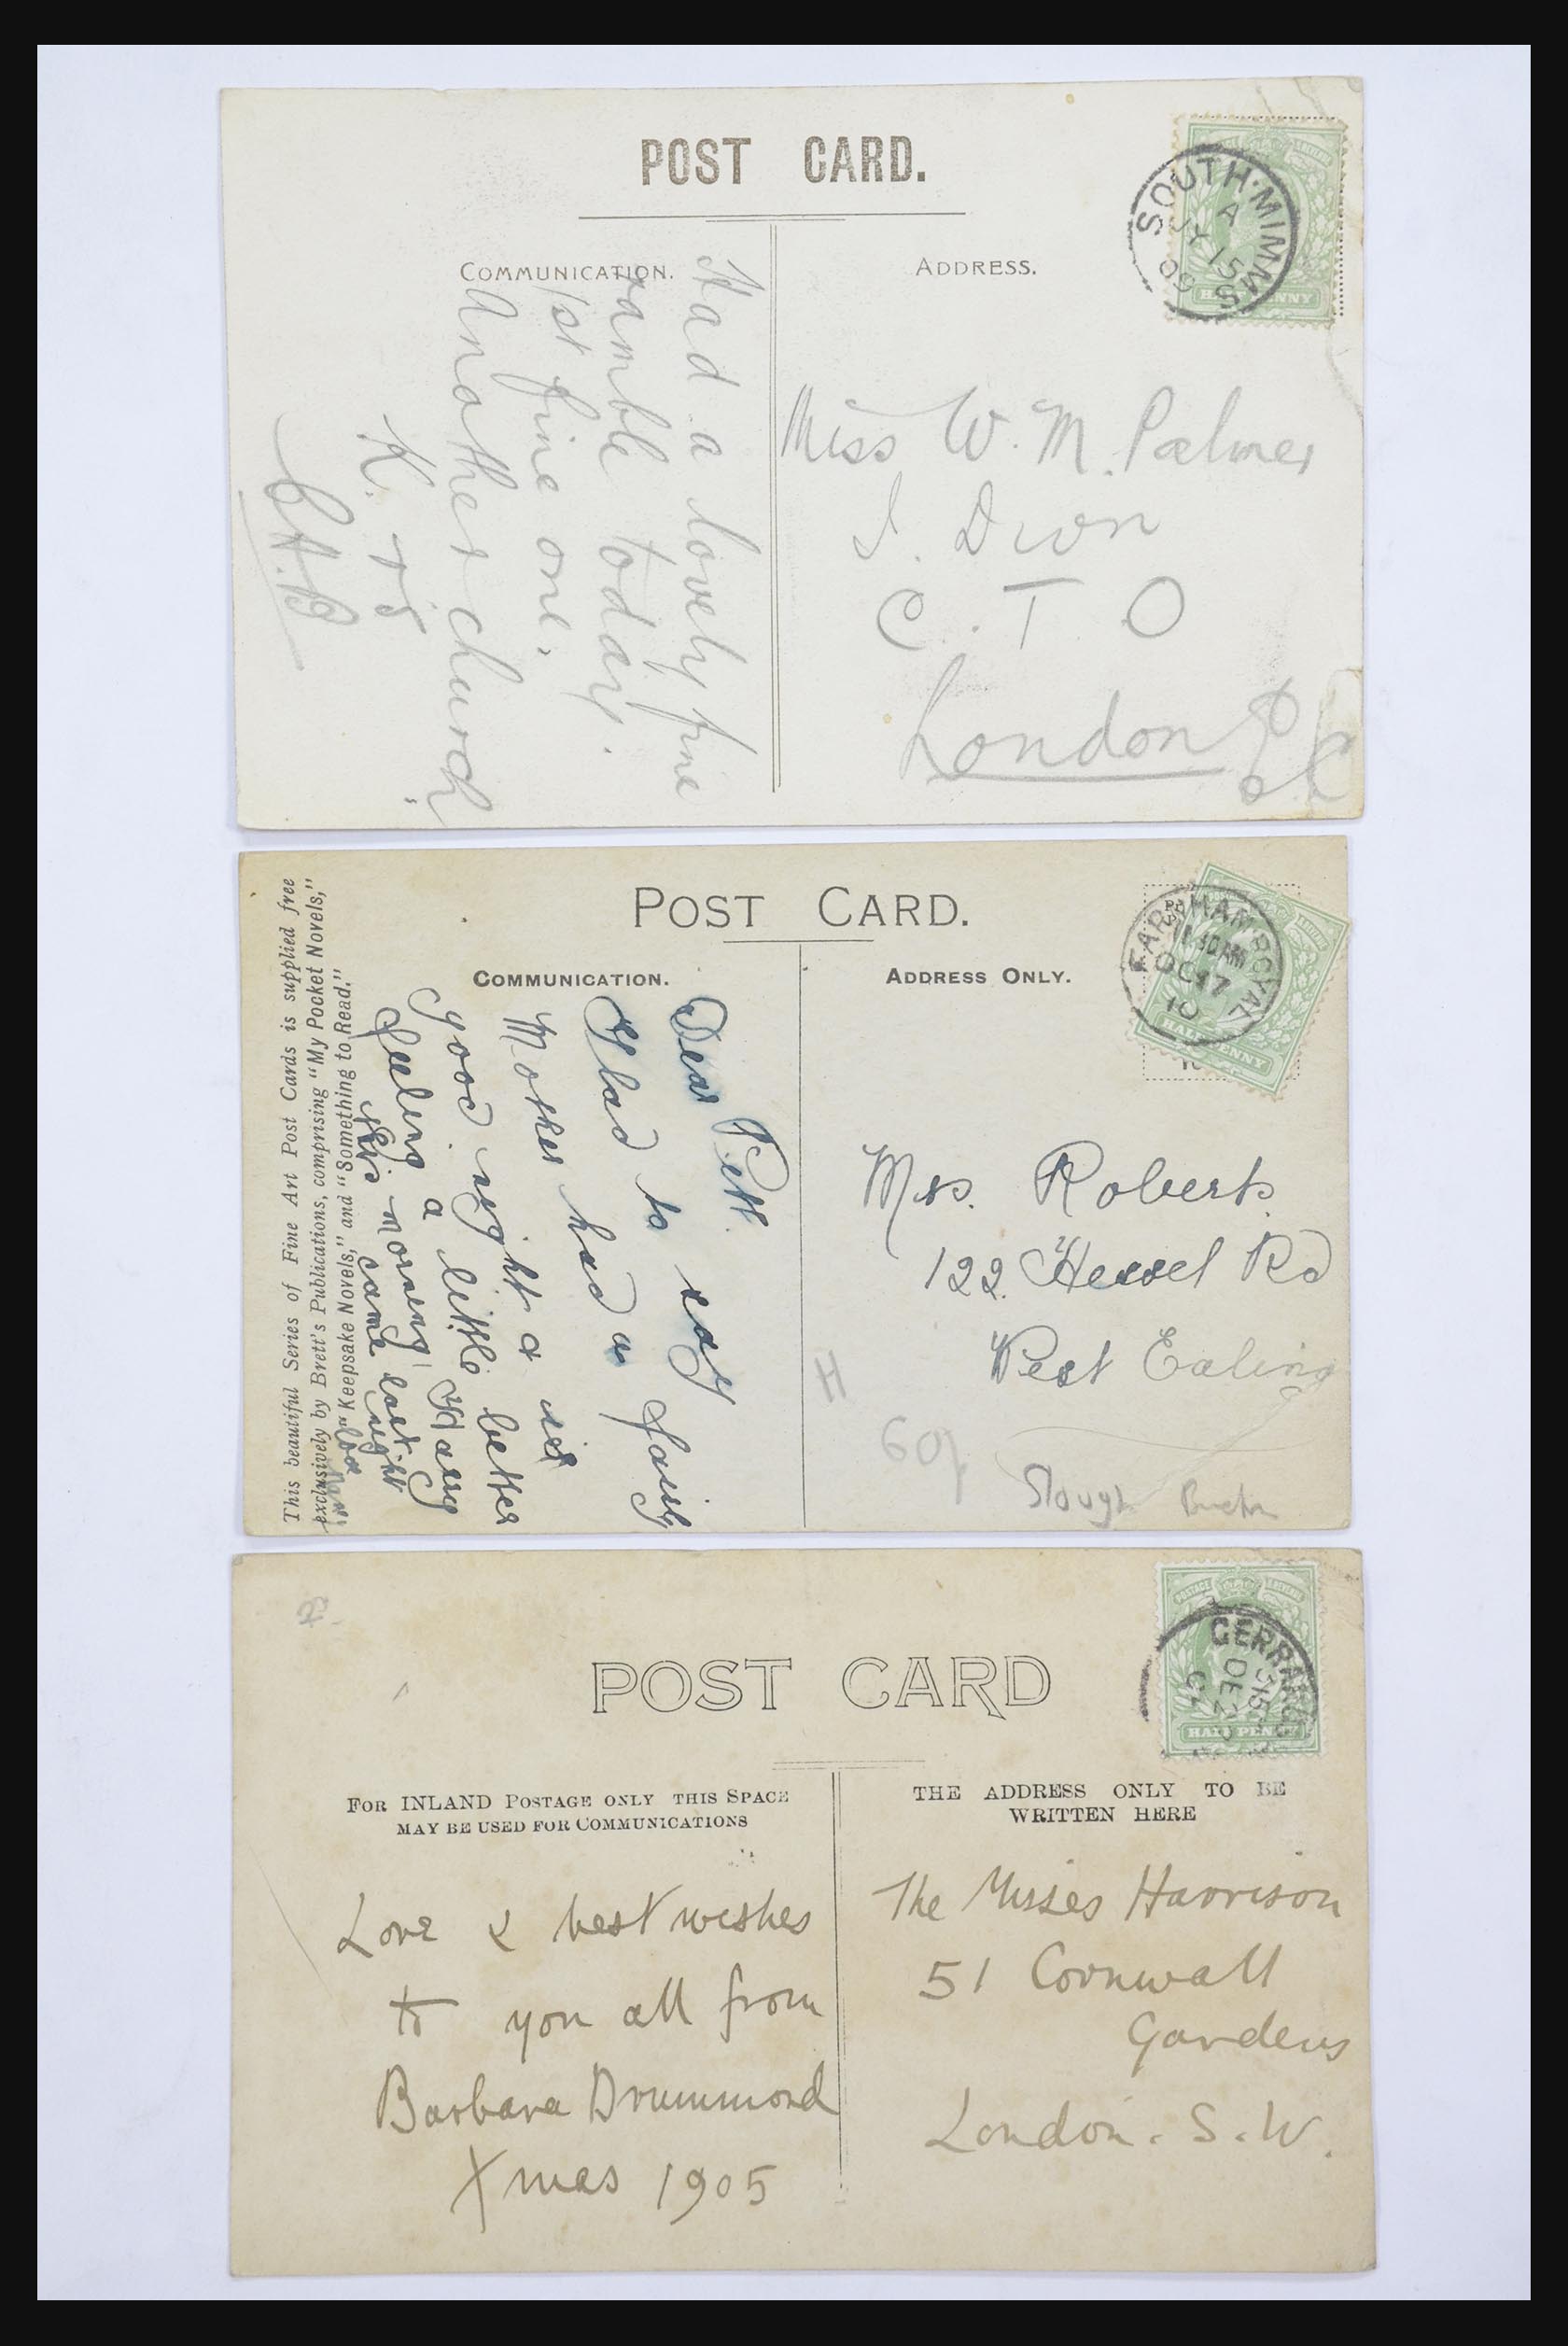 POST CARD.
COMMUNICATION.
ADDRESS.
SOUTH·MIMMS
A
JY 15
09
HALFPENNY
Had a lovely fine
ramble today.
1st fine one.
Another church
Miss W. M. Palmer
C. T. O
London EC
POST CARD.
COMMUNICATION.
ADDRESS ONLY.
FARNHAM ROYAL
11 30AM
OC 17
10
HALFPENNY
This beautiful Series of Fine Art Post Cards is supplied free
exclusively by Brett's Publications, comprising "My Pocket Novels,"
"Keepsake Novels," and "Something to Read."
Dear Pett.
Glad to say
Mother had a
good night &
feeling a little better
this morning Harry
came last night
Mrs. Roberts.
122 Hessel Rd
West Ealing
H
60/
Slough
POST CARD
GERRARD
DE 2
POSTAGE REVENUE
HALFPENNY
FOR INLAND POSTAGE ONLY THIS SPACE
MAY BE USED FOR COMMUNICATIONS
THE ADDRESS ONLY TO BE
WRITTEN HERE
Love & best wishes
to you all from
Barbara Drummond
Xmas 1905
The Misses Harrison
51 Cornwall
Gardens
London. S.W.